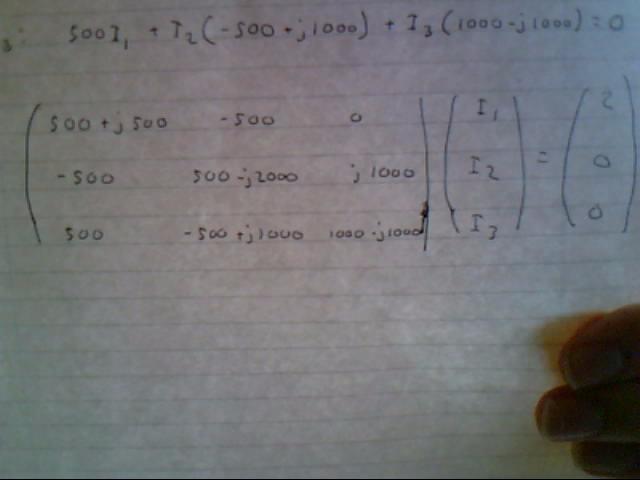 3: 500I₁ + I₂(-500 + j1000) + I₃(1000 - j1000) = 0
500 + j500 -500 0 I₁ 2
-500 500 - j2000 j1000 I₂ = 0
500 -500 + j1000 1000 - j1000 I₃ 0